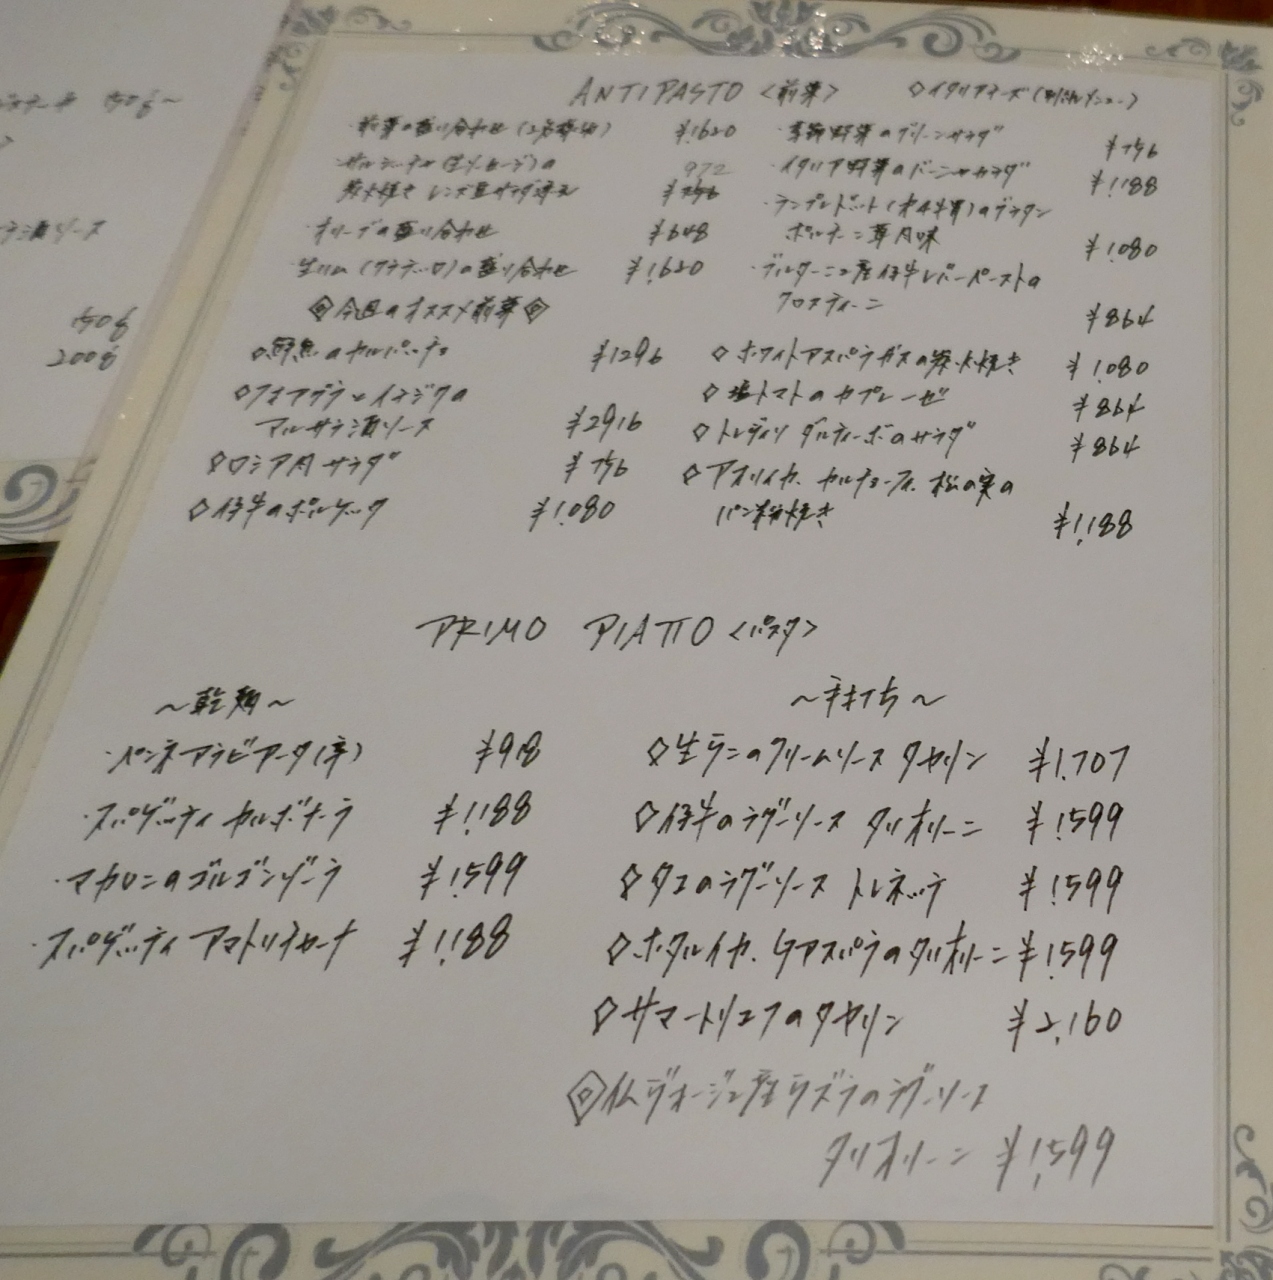 ANTIPASTO <前菜> ◇イタリアチーズ(別紙メニュー)
・前菜の盛り合わせ(2名様分) ¥1,620
・サルシッチャ(生ソーセージ)の 972
炭火焼き レンズ豆サラダ添え ¥756
・オリーブの盛り合わせ ¥648
・生ハム(クラテッロ)の盛り合わせ ¥1,620
・季節野菜のグリーンサラダ ¥756
・イタリア野菜のバーニャカウダ ¥1,188
・ランプレドット(オ4牛胃)のグラタン
ポルチーニ茸風味 ¥1,080
・ブルターニュ産仔牛レバーペーストの
クロスティーニ ¥864
◇今週のオススメ前菜◇
◇鮮魚のカルパッチョ ¥1296
◇フォアグラとイチジクの
マルサラ酒ソース ¥2916
◇ロシア風サラダ ¥756
◇仔牛のポルケッタ ¥1,080
◇ホワイトアスパラガスの炭火焼き ¥1,080
◇塩トマトのカプレーゼ ¥864
◇トレヴィソ タルティーボのサラダ ¥864
◇アオリイカ、カルチョーフィ、松の実の
パン粉焼き ¥1,188
PRIMO PIATTO <パスタ>
~乾麺~
・ペンネアラビアータ(辛) ¥918
・スパゲッティ カルボナーラ ¥1,188
・マカロニのゴルゴンゾーラ ¥1,599
・スパゲッティ アマトリチャーナ ¥1,188
~手打ち~
◇生ウニのクリームソース タヤリン ¥1,707
◇仔牛のラグーソース タリオリーニ ¥1,599
◇タコのラグーソース トレネッテ ¥1,599
◇ホタルイカ、Gアスパラのタリオリーニ ¥1,599
◇サマートリュフのタヤリン ¥2,160
◇仏ヴォージュ産ウズラのラグーソース
タリオリーニ ¥1,599
150g~
酒ソース
150g
200g